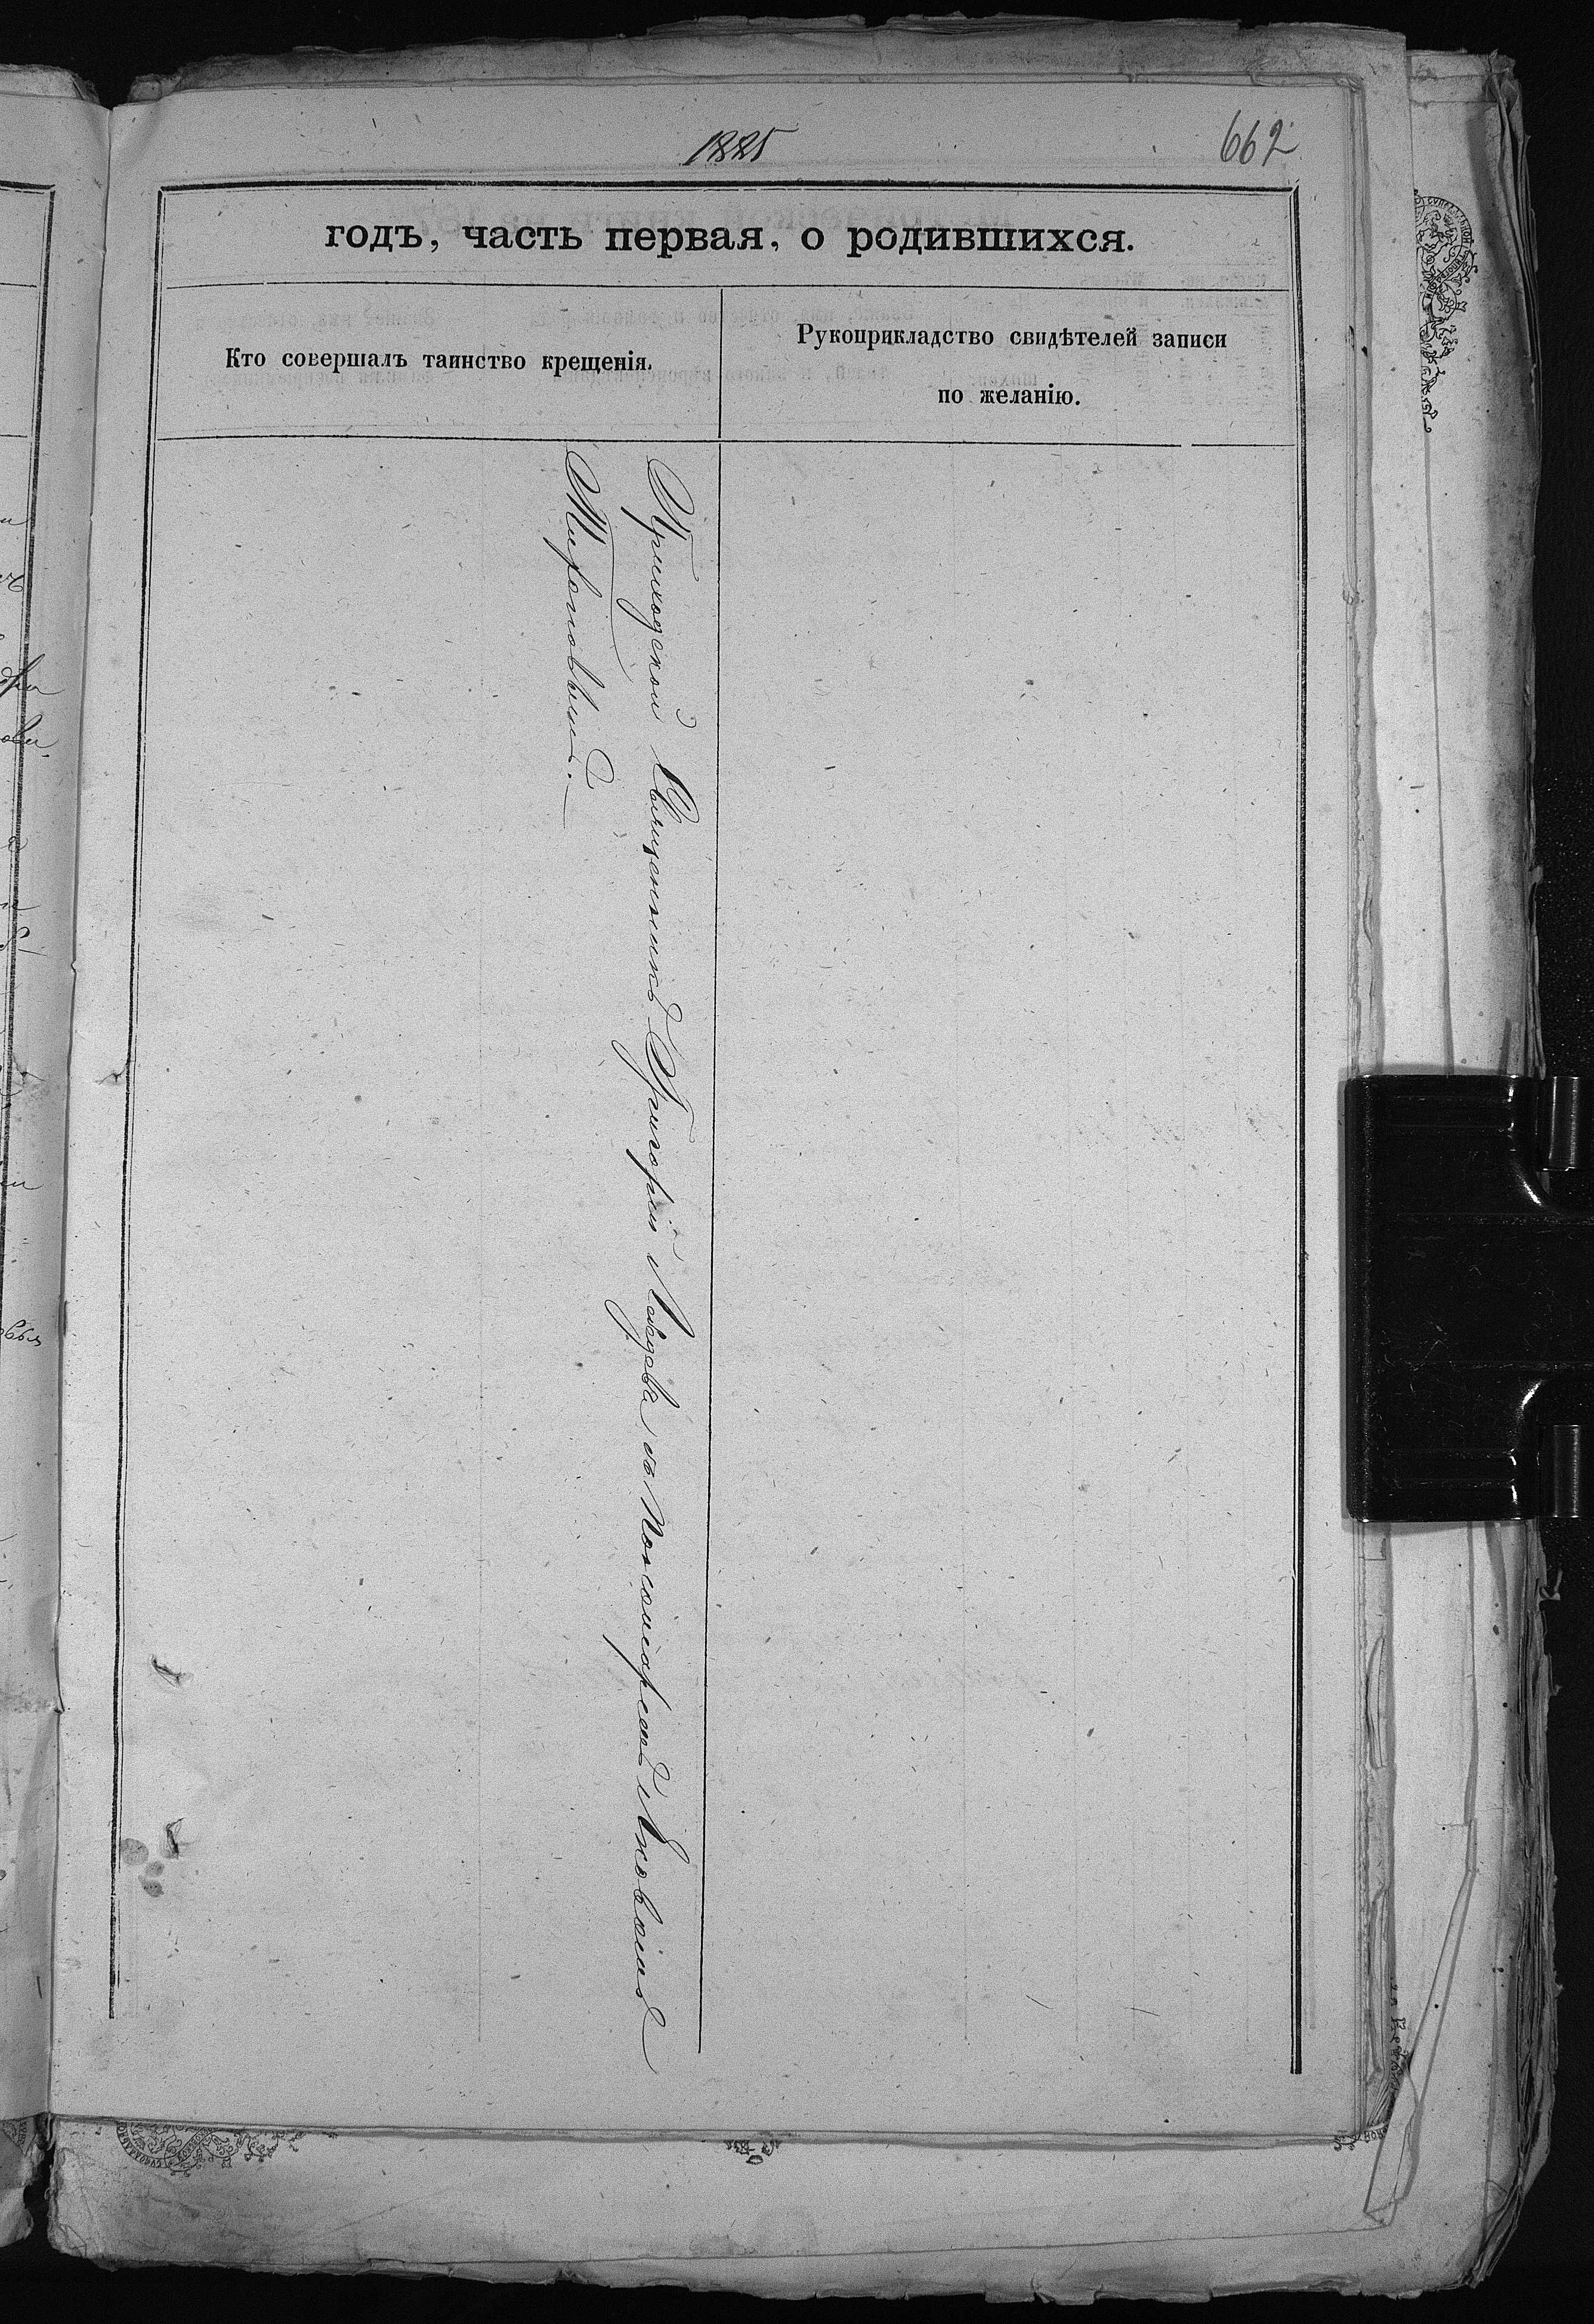 1885
662
годъ, часть первая, о родившихся.
Кто совершалъ таинство крещенія.
Рукоприкладство свидѣтелей записи
по желанію.
Приходской Священникъ Григорій съ Псаломщикомъ Яковомъ
Мироновымъ.